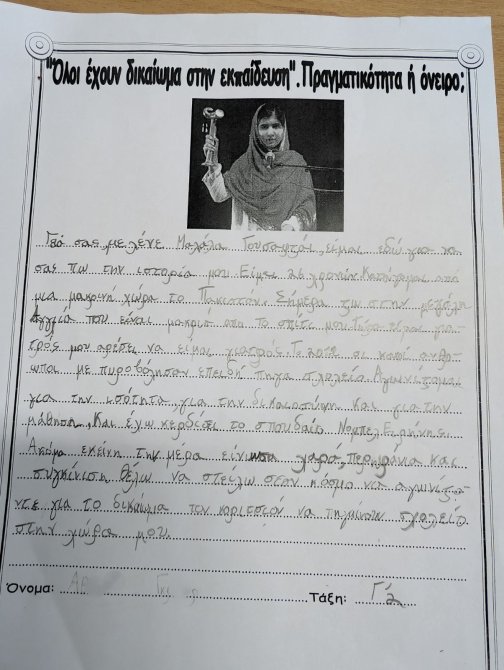 "Όλοι έχουν δικαίωμα στην εκπαίδευση". Πραγματικότητα ή όνειρο;
Γειά σας, με λένε Μαλάλα Γιουσαφζάι, είμαι εδώ για να
σας πω την ιστορία μου. Είμαι 26 χρονών. Κατάγομαι από
μια μακρινή χώρα το Πακισταν. Σήμερα ζω στην μεγάλη
Αγγλία που είναι μακριά από το σπίτι μου.
τρός μου αρέσει να είμαι γιατρός. 2012 οι κακοί ανθρω
ωποι με πυροβόλησαν επειδή πηγα σχολείο. Αγωνίζομαι
για την ισότητα, για την δικαιοσύνη και για την
μάθηση. Και έχω κερδίσει το σπουδαίο Νομπελ Ειρήνης.
Ακόμα εκείνη την μέρα ένιωσα χαρά, περηφάνια και
συγκίνιση. Θέλω να στείλω στον κόσμο να αγωνίζο
ντε για το δικαίωμα των κοριτσιών να πηγαίνουν σχολείο
στην χώρα μου.
Όνομα: Τάξη: Γ'2